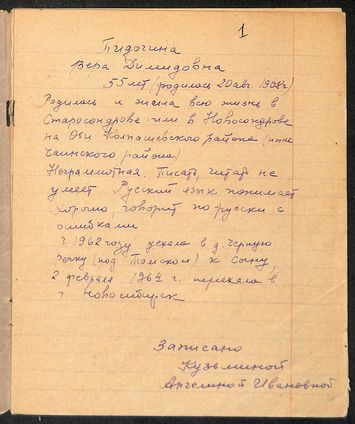 1
Пидогина
Вера Димидовна
55 лет (родилась 20 авг. 1908 г.)
Родилась и жила всю жизнь в
Старосондрове или в Новосондрове
на Оби Колпашевского района (ныне
Чаинского района)
Неграмотная. Писать, читать не
умеет. Русский язык понимает
хорошо, говорит по русски с
ошибками
в 1962 году уехала в д. Черную
речку (под Томском) к сыну,
2 февраля 1964 г. переехала в
г. Новосибирск
Записано
Кузьминой
Ангелиной Ивановной